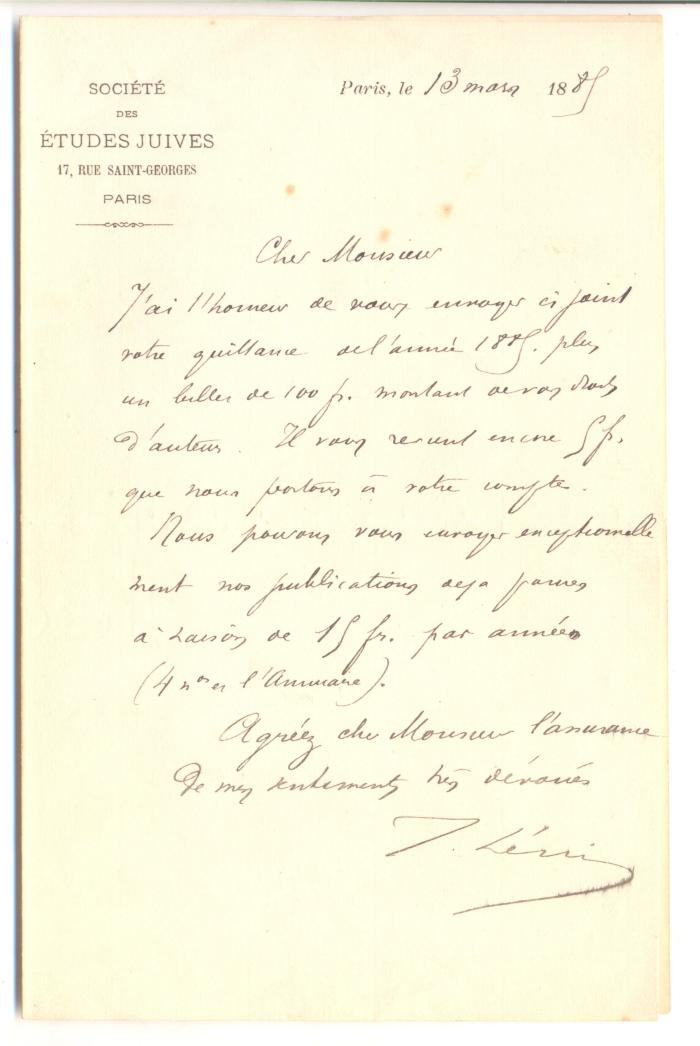 SOCIÉTÉ
DES
ÉTUDES JUIVES
17, RUE SAINT-GEORGES
PARIS
Paris, le 13 mars 1885
Cher Monsieur
J'ai l'honneur de vous envoyer ci joint
votre quittance de l'année 1885. plus
un billet de 100 fr. montant de vos droits
d'auteur. Il vous revient encore 5 fr.
que nous portons à votre compte.
Nous pouvons vous envoyer exceptionnelle
ment nos publications deja parues
à raison de 15 fr. par année
(4 nos et l'Annuaire).
Agréez cher Monsieur l'assurance
de mes sentiments très dévoués
Lévi